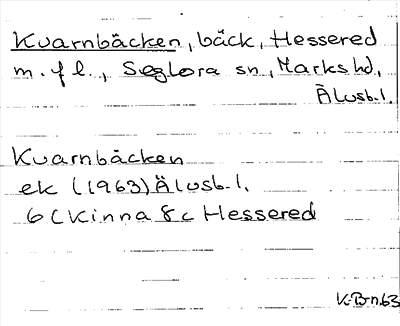 Kvarnbäcken, bäck, Hessered
m.fl., Seglora sn, Marks hd,
Älvsb.l.
Kvarnbäcken
ek (1963) Älvsb.l.
6C Kinna 8c Hessered
K.B-n.63